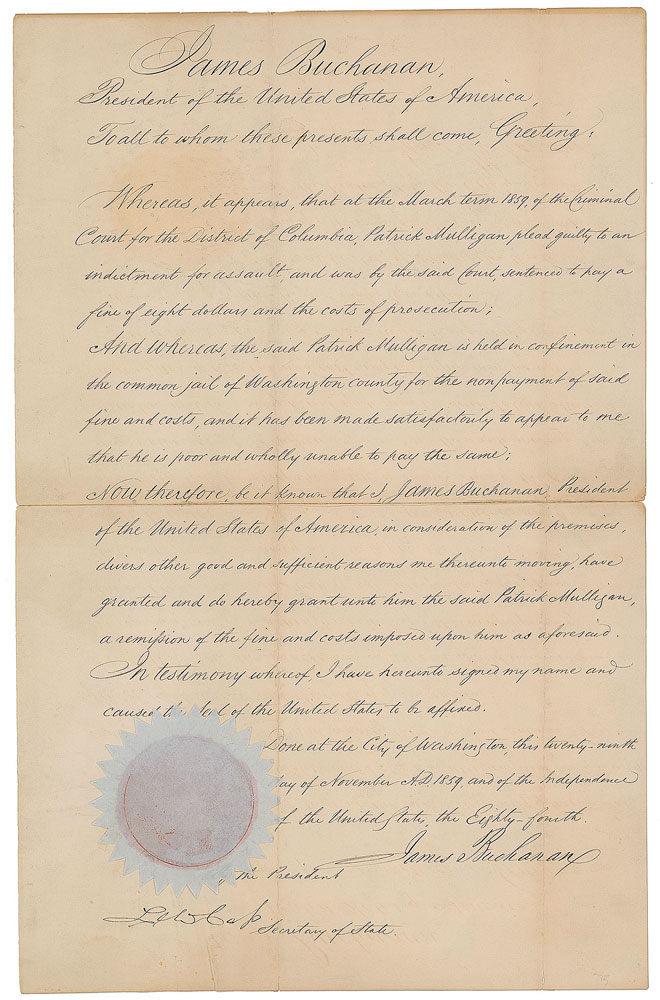 James Buchanan,
President of the United States of America,
To all to whom these presents shall come, Greeting:
Whereas, it appears, that at the March term 1859, of the Criminal
Court for the District of Columbia, Patrick Mulligan plead guilty to an
indictment for assault, and was by the said Court, sentenced to pay a
fine of eight dollars and the costs of prosecution;
And whereas, the said Patrick Mulligan is held in confinement in
the common jail of Washington county for the nonpayment of said
fine and costs, and it has been made satisfactorily to appear to me
that he is poor and wholly unable to pay the same;
Now therefore, be it known that I, James Buchanan, President
of the United States of America, in consideration of the premises,
divers other good and sufficient reasons me thereunto moving, have
granted and do hereby grant unto him the said Patrick Mulligan,
a remission of the fine and costs imposed upon him as aforesaid.
In testimony whereof, I have hereunto signed my name and
caused the Seal of the United States to be affixed.
Done at the City of Washington, this twenty-ninth
day of November A.D. 1859, and of the Independence
of the United States, the Eighty-fourth.
James Buchanan
the President
Lew Cass
Secretary of State.